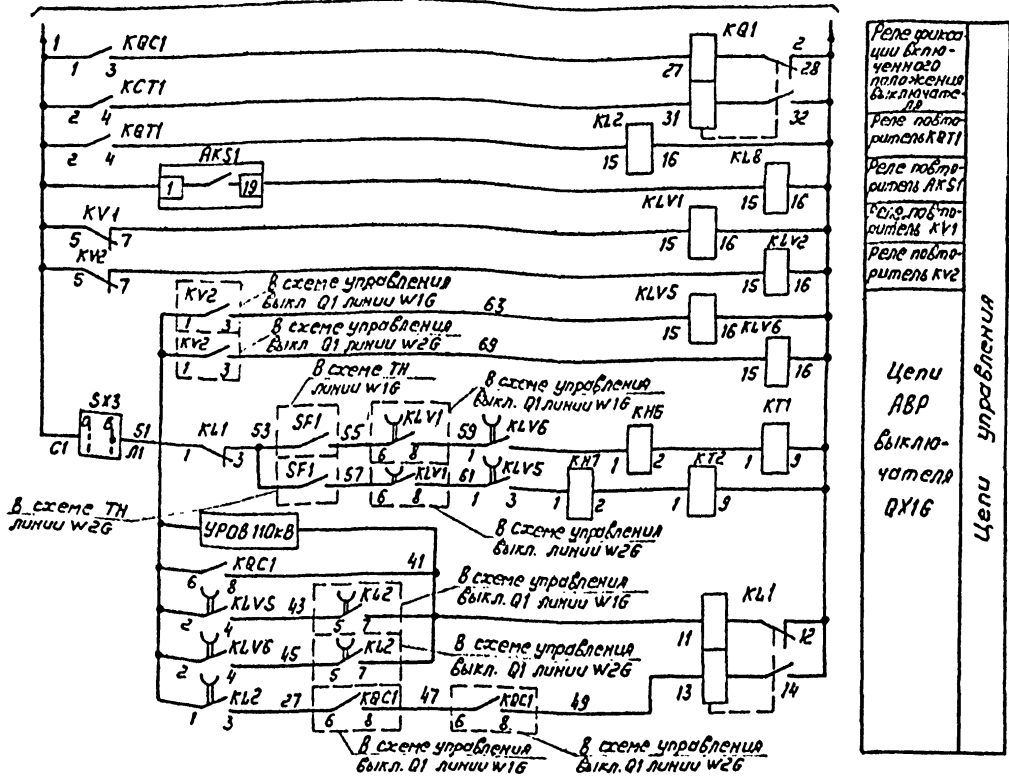 1 KQC1 KQ1 2
1 3 27 28
KCT1
2 4 31 32
KQT1 KL2
2 4 15 16
AKS1 KL8
1 19 15 16
KV1 KLV1
5 7 15 16
KV2 KLV2
5 7 15 16
В схеме управления
выкл Q1 линии W1G
KV2 63 KLV5
1 3 15 16
В схеме управления
выкл Q1 линии W2G
KV2 69 KLV6
1 3 15 16
В схеме ТН
линии W1G
В схеме управления
выкл. Q1 линии W1G
SX3 51 KL1 53 SF1 55 KLV1 59 KLV6 KH6 KT1
С1 Л1 1 3 6 8 1 3 1 2 1 9
SF1 57 KLV1 61 KLV5 KH7 KT2
6 8 1 3 1 2 1 9
В схеме ТН
линии W2G
В схеме управления
выкл. линии W2G
УРОВ 110кВ
KQC1 41
6 8
В схеме управления
выкл. Q1 линии W1G
KLV5 43 KL2 KL1
2 4 5 7 11 12
В схеме управления
выкл. Q1 линии W2G
KLV6 45 KL2
2 4 5 7 13 14
KL2 27 KQC1 47 KQC1 49
1 3 6 8 6 8
В схеме управления
выкл. Q1 линии W1G
В схеме управления
выкл. Q1 линии W2G
Реле фикса
ции вклю-
ченного
положения
выключате-
ля
Реле повто-
ритель KQT1
Реле повто-
ритель AKS1
повто-
ритель KV1
Реле повто-
ритель KV2
Цепи
АВР
выклю-
чателя
QX1G
Цепи управления